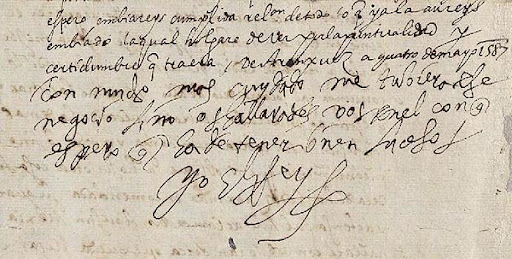 espero embiareys cumplida relon de todo lo q̃ ya la aureys
embiado la qual holgare de ver por la puntualidad y
certidumbre q̃ traera, De Aranxuez a quatro de mayo 1587
con mucho mas cuydado me tubiera este
negocio si no os hallarades vos en el con q̃
espero q̃ ha de tener buen suceso
Yo el Rey